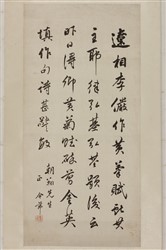 遼相李儼作黃菊賦獻其
主耶律弘基弘基題後云
昨日得卿黃菊賦碎剪金英
填作句詩甚
先生
正